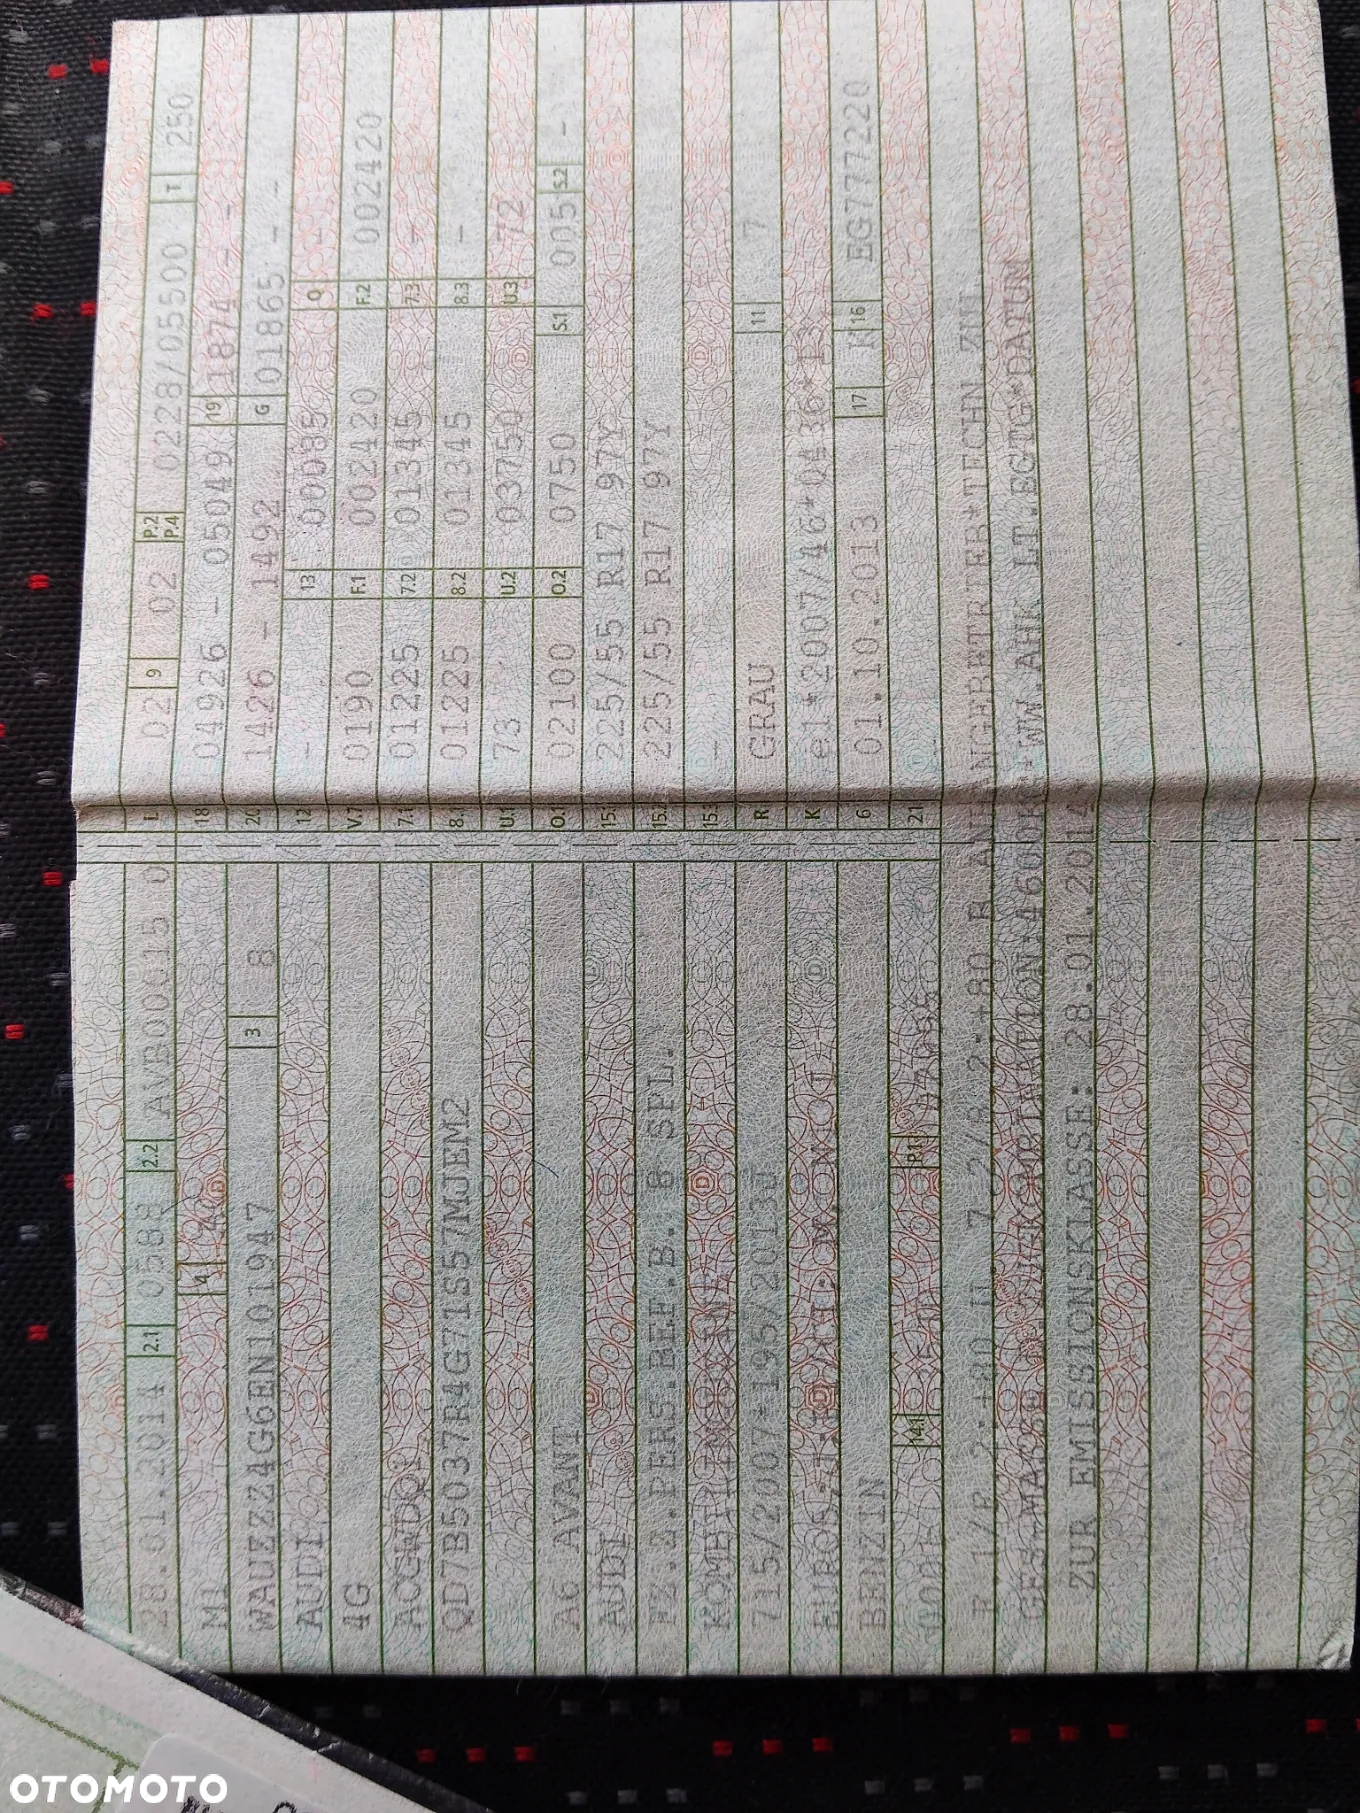 28.01.2014 2.1 0588 2.2 AVB00015 0
M1 4 AC
WAUZZZ4G6EN101947 3 8
AUDI
4G
QD7B5037R4G71S57MJEM2
A6 AVANT
AUDI
FZ.Z.PERS.BEF.B. 8 SPL.
KOMBILIMOUSINE
715/2007*195/2013J
BENZIN
14.1 P.1
L 02 9 02 P.2 P.4 0228/05500 T 250
18 04926 - 05049 19 1874 - -
20 1426 - 1492 G 01865 - -
12 - 13 00085 Q -
V.7 0190 F.1 002420 F.2 002420
7.1 01225 7.2 01345 7.3 -
8.1 01225 8.2 01345 8.3 -
U.1 73 U.2 03750 U.3 72
O.1 02100 O.2 0750 S.1 005 S.2 -
15.1 225/55 R17 97Y
15.2 225/55 R17 97Y
15.3 -
R GRAU 11 7
K e1*2007/46*0436*13
6 01.10.2013 17 K 16 EG777220
21
7.2/8.2:+80 B.ANHANGERBETRIEB*TECHN.ZUL.
WW.AHK LT.EGTG*DATUM
ZUR EMISSIONSKLASSE: 28.01.2014
OTOMOTO